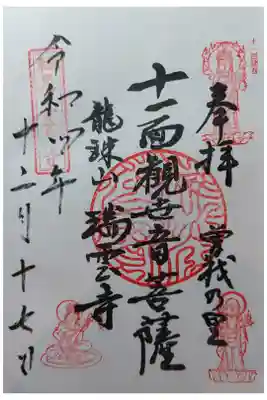 奉拝 曽我の里
十一面観世音菩薩
龍珠山 瑞雲寺
令和四年
十二月十七日